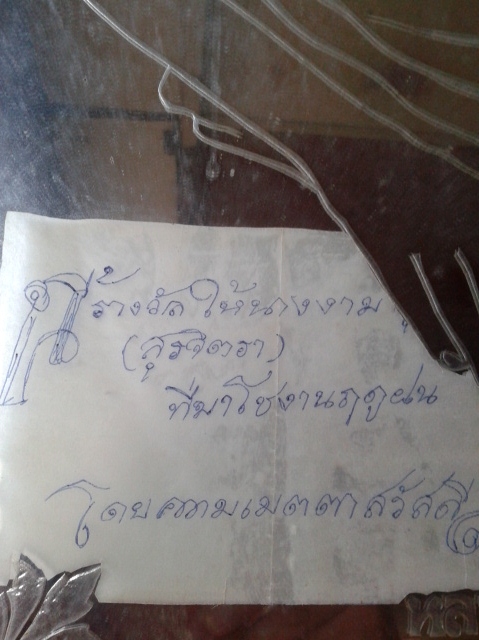 รางวัล ให้นางงาม
(สุรจิตรา)
ที่มาโชงานฤดูฝน
โดยความเมตตาสวัสดี